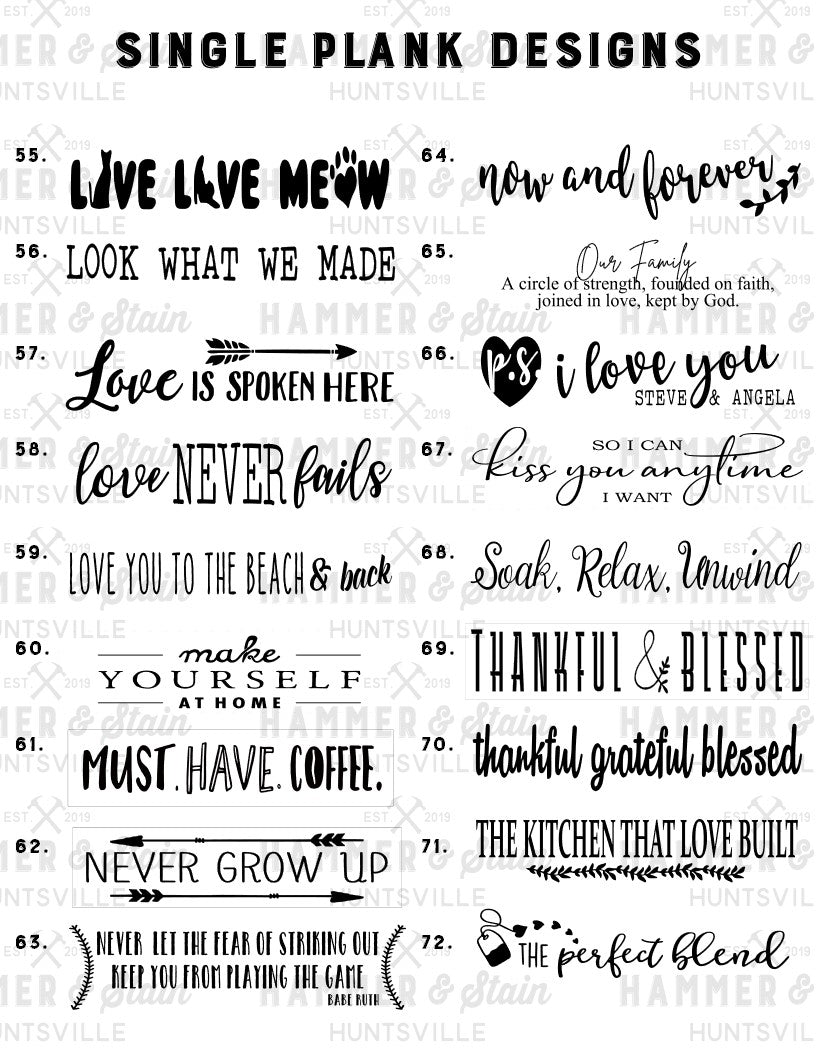 SINGLE PLANK DESIGNS
55. LIVE LOVE MEOW
56. LOOK WHAT WE MADE
57. Love IS SPOKEN HERE
58. love NEVER fails
59. LOVE YOU TO THE BEACH & back
60. make
YOURSELF
AT HOME
61. MUST. HAVE. COFFEE.
62. NEVER GROW UP
63. NEVER LET THE FEAR OF STRIKING OUT
KEEP YOU FROM PLAYING THE GAME
BABE RUTH
64. now and forever
65. Our Family
A circle of strength, founded on faith,
joined in love, kept by God.
66. p.s i love you
STEVE & ANGELA
67. SO I CAN
kiss you anytime
I WANT
68. Soak, Relax, Unwind
69. THANKFUL & BLESSED
70. thankful grateful blessed
71. THE KITCHEN THAT LOVE BUILT
72. THE perfect blend
EST. 2019
HAMMER & Stain
HUNTSVILLE